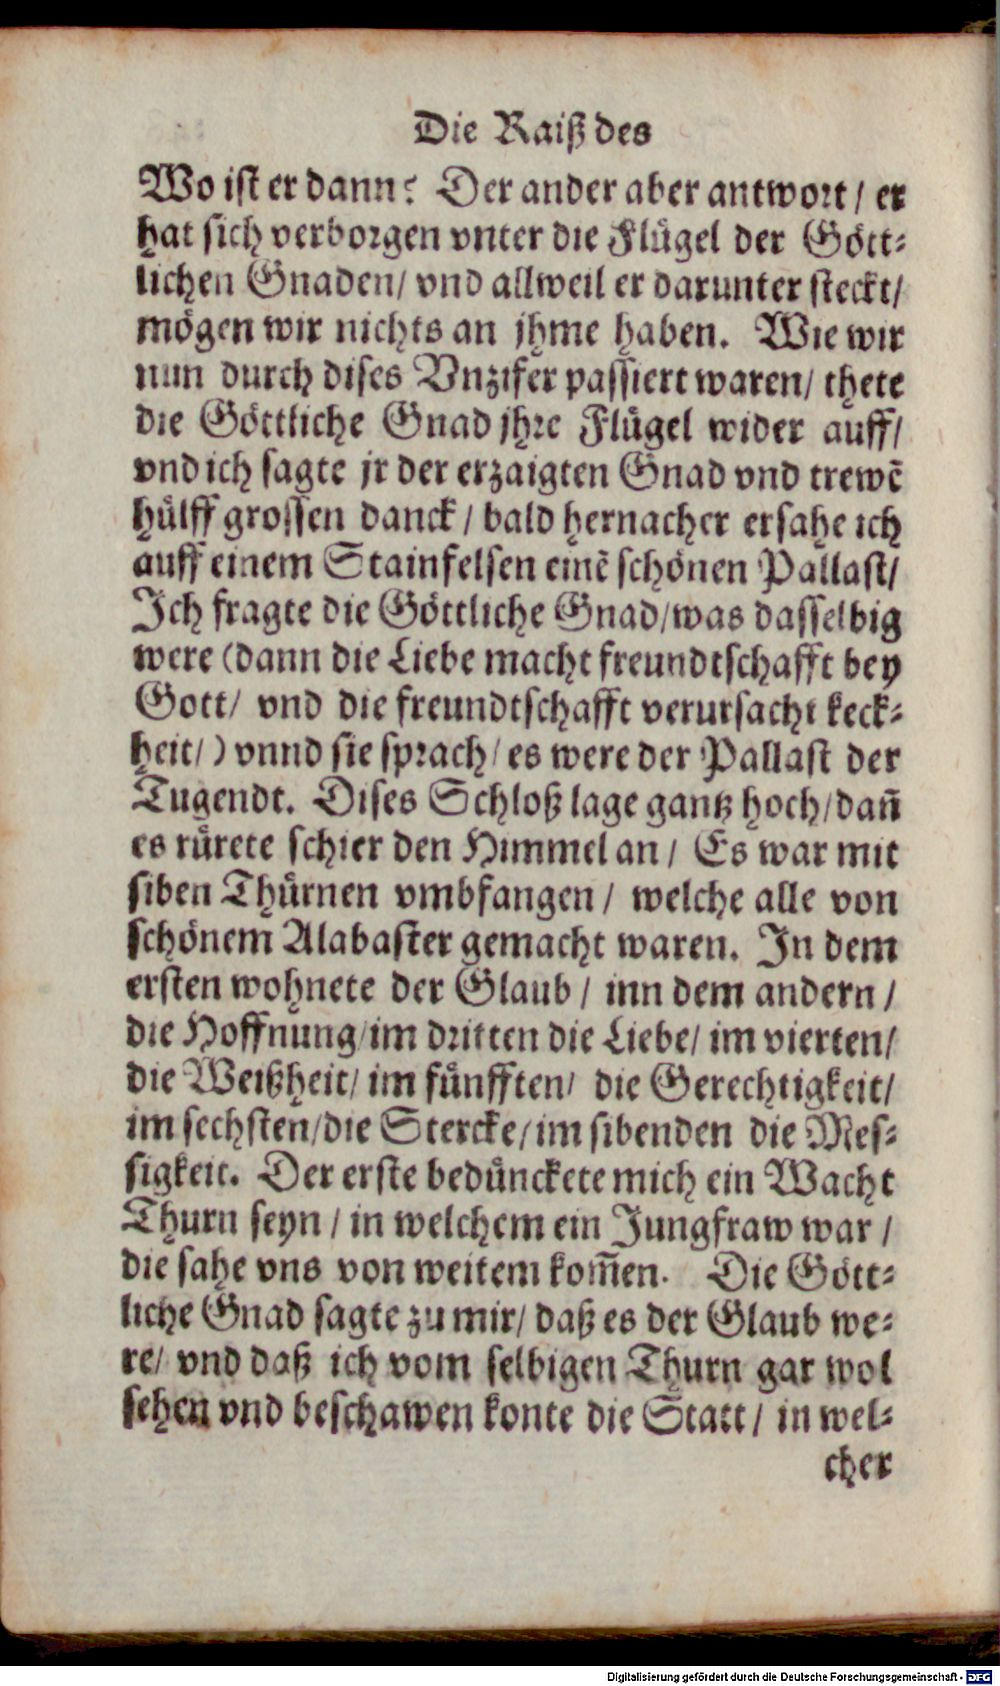 Die Raiß des
Wo ist er dann? Der ander aber antwort / er
hat sich verborgen vnter die Flügel der Gött-
lichen Gnaden / vnd allweil er darunter steckt /
mögen wir nichts an jhme haben. Wie wir
nun durch dises Vnzifer passiert waren / thete
die Göttliche Gnad jhre Flügel wider auff /
vnd ich sagte jr der erzaigten Gnad vnd trewẽ
hülff grossen danck / bald hernacher ersahe ich
auff einem Stainfelsen einẽ schönen Pallast /
Ich fragte die Göttliche Gnad / was dasselbig
were (dann die Liebe macht freundtschafft bey
Gott / vnd die freundtschafft verursacht keck-
heit /) vnnd sie sprach / es were der Pallast der
Tugendt. Dises Schloß lage gantz hoch / dañ
es rürete schier den Himmel an / Es war mit
siben Thürnen vmbfangen / welche alle von
schönem Alabaster gemacht waren. In dem
ersten wohnete der Glaub / inn dem andern /
die Hoffnung / im dritten die Liebe / im vierten /
die Weißheit / im fünfften / die Gerechtigkeit /
im sechsten / die Stercke / im sibenden die Mes-
sigkeit. Der erste bedünckete mich ein Wacht
Thurn seyn / in welchem ein Jungfraw war /
die sahe vns von weitem kom̃en. Die Gött-
liche Gnad sagte zu mir / daß es der Glaub we-
re / vnd daß ich vom selbigen Thurn gar wol
sehen vnd beschawen konte die Statt / in wel-
cher
Digitalisierung gefördert durch die Deutsche Forschungsgemeinschaft - DFG